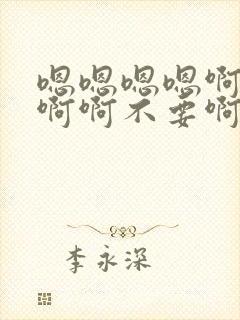 嗯嗯嗯嗯啊
啊啊不要啊
李永深